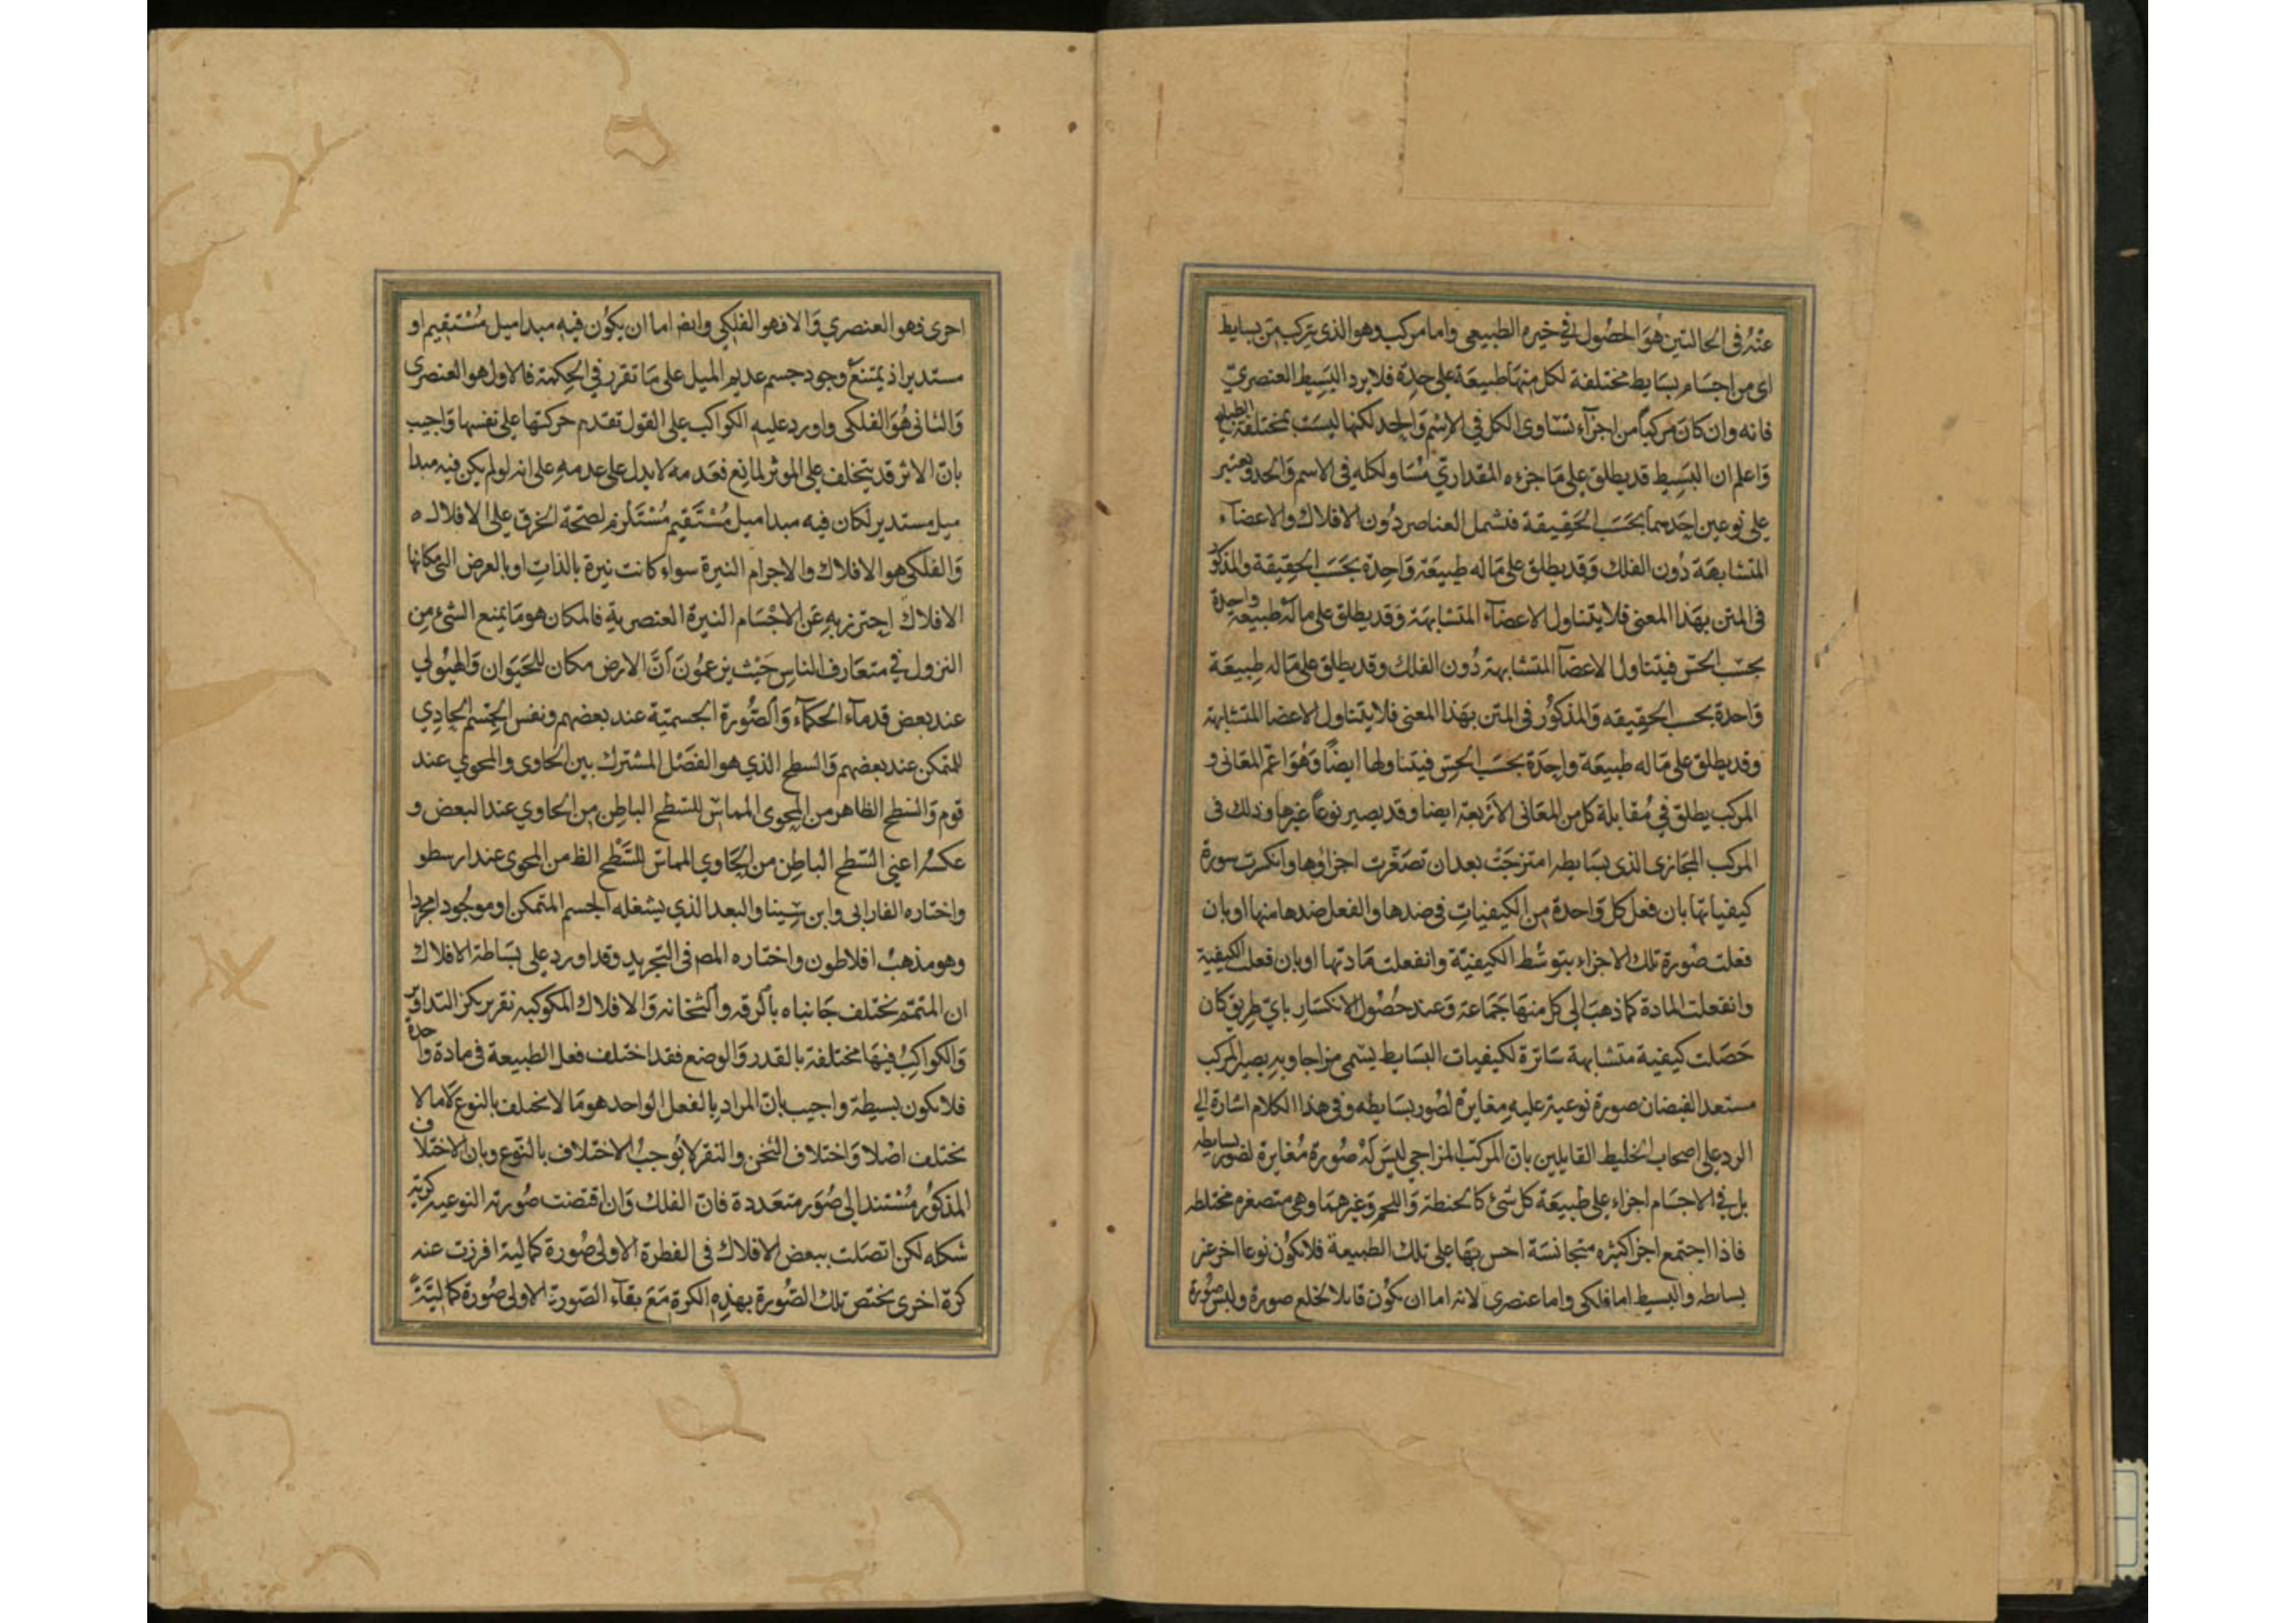 عنه فى الحالتين هو الحصول في خيره الطبيعى واما مركب وهو الذى يتركب من بسايط
اى من اجسام بسايط مختلفة لكل منها طبيعة على حدة فلا يرد البسيط العنصري
فانه وان كان مركبا من اجزآء تساوى الكل في الاسم والحد لكنها ليست بمختلفة الطبايع
واعلم ان البسيط قد يطلق على ما جزءه المقداري مساو لكله فى الاسم والحد ويعتبر
على نوعين احدهما بحسب الحقيقة فتشمل العناصر دون الافلاك والاعضآء
المتشابهة دون الفلك وقد يطلق على ما له طبيعة واحدة بحسب الحقيقة والمذكور
فى المتن بهذا المعنى فلا يتناول الاعضآء المتشابهة وقد يطلق على ما له طبيعة واحدة
بحسب الحس فيتناول الاعضآ المتشابهة دون الفلك وقد يطلق على ما له طبيعة
واحدة بحسب الحقيقه والمذكور فى المتن بهذا المعنى فلا يتناول الاعضا المتشابهة
وقد يطلق على ما له طبيعة واحدة بحسب الحس فيتناولها ايضاً وهو اعم المعانى و
المركب يطلق في مقابلة كل من المعانى الاربعة ايضا وقد يصير نوعاً غيرها وذلك فى
المركب المجازى الذى بسايطه امتزجت بعد ان تصغرت اجزاؤها وانكرت سورة
كيفياتها بان فعل كل واحدة من الكيفيات فى ضدها والفعل ضدها منها او بان
فعلت صورة تلك الاجزاء بتوسط الكيفية وانفعلت مادتها او بان فعلت الكيفية
وانفعلت المادة كما ذهب الى كل منها جماعة وعند حصول الانكسار باي طريق كان
حصلت كيفية متشابهة ساترة لكيفيات البسايط يسمى مزاجا وبه يصير المركب
مستعد الفيضان صورة نوعية عليه مغايرة لصور بسايطه وفى هذا الكلام اشارة الي
الرد على اصحاب الخليط القايلين بان المركب المزاجي ليس له صورة مغايرة لصور بسايطه
بل في الاجسام اجزاء على طبيعة كل شئ كالحنطة واللحم وغيرهما وهى متصغره مختلطه
فاذا اجتمع اجزا كثيره متجانسة احس بها على تلك الطبيعة فلا يكون نوعا اخر غير
بسايطه والبسيط اما فلكى واما عنصرى لانه اما ان يكون قابلا لخلع صورة ولبس صورة
احرى فهو العنصري والا فهو الفلكي وايضا اما ان يكون فيه مبدا ميل مستقيم او
مستدير اذ يمتنع وجود جسم عديم الميل على ما تقرر في الحكمة فالاول هو العنصرى
والثانى هو الفلكى واورد عليه الكواكب على القول تقدم حركتها على نفسها واجيب
بان الاثر قد يتخلف على الموثر لمانع فعدمه لا يدل على عدمه على انه لو لم يكن فيه مبدا
ميل مستدير لكان فيه مبدا ميل مستقيم مستلزم لصحة الخرق على الافلاك ه
والفلكى هو الافلاك والاجرام النيرة سواء كانت نيرة بالذات او بالعرض التى مكانها
الافلاك احترز به عن الاجسام النيرة العنصرية فالمكان هو ما يمنع الشئ من
النزول في متعارف الناس حيث يزعمون ان الارض مكان للحيوان والهيولي
عند بعض قدمآء الحكمآء والصورة الجسمية عند بعضهم ونفس الجسم الحادي
للمتمكن عند بعضهم والسطح الذي هو الفصل المشترك بين الحاوى والمحوي عند
قوم والسطح الظاهر من المحوى المماس للسطح الباطن من الحاوي عند البعض و
عكسه اعني السطح الباطن من الحاوي المماس للسطح الظ من المحوى عند ارسطو
واختاره الفارابى وابن سينا والبعد الذي يشغله الجسم المتمكن او موجودا مجردا
وهو مذهب افلاطون واختاره المص فى التجريد وقد اورد على بساطة الافلاك
ان المتمم يختلف جانباه بالرقه والثخانه والافلاك المكوكبه نقرير بكز التداوير
والكواكب فيها مختلفة بالقدر والوضع فقد اختلف فعل الطبيعة فى مادة واحدة
فلا يكون بسيطة واجيب بان المراد بالفعل الواحد هو ما لا يختلف بالنوع لا ما لا
يختلف اصلا واختلاف الثخن والنقر لا يوجب الاختلاف بالنوع وبان الاختلاف
المذكور مستند الى صور متعددة فان الفلك وان اقتضت صورته النوعيه كرية
شكله لكن اتصلت ببعض الافلاك فى الفطرة الاولى صورة كمالية افرزت عنه
كرة اخرى يختص تلك الصورة بهذه الكرة مع بقآء الصورة الاولى صورة كمالية